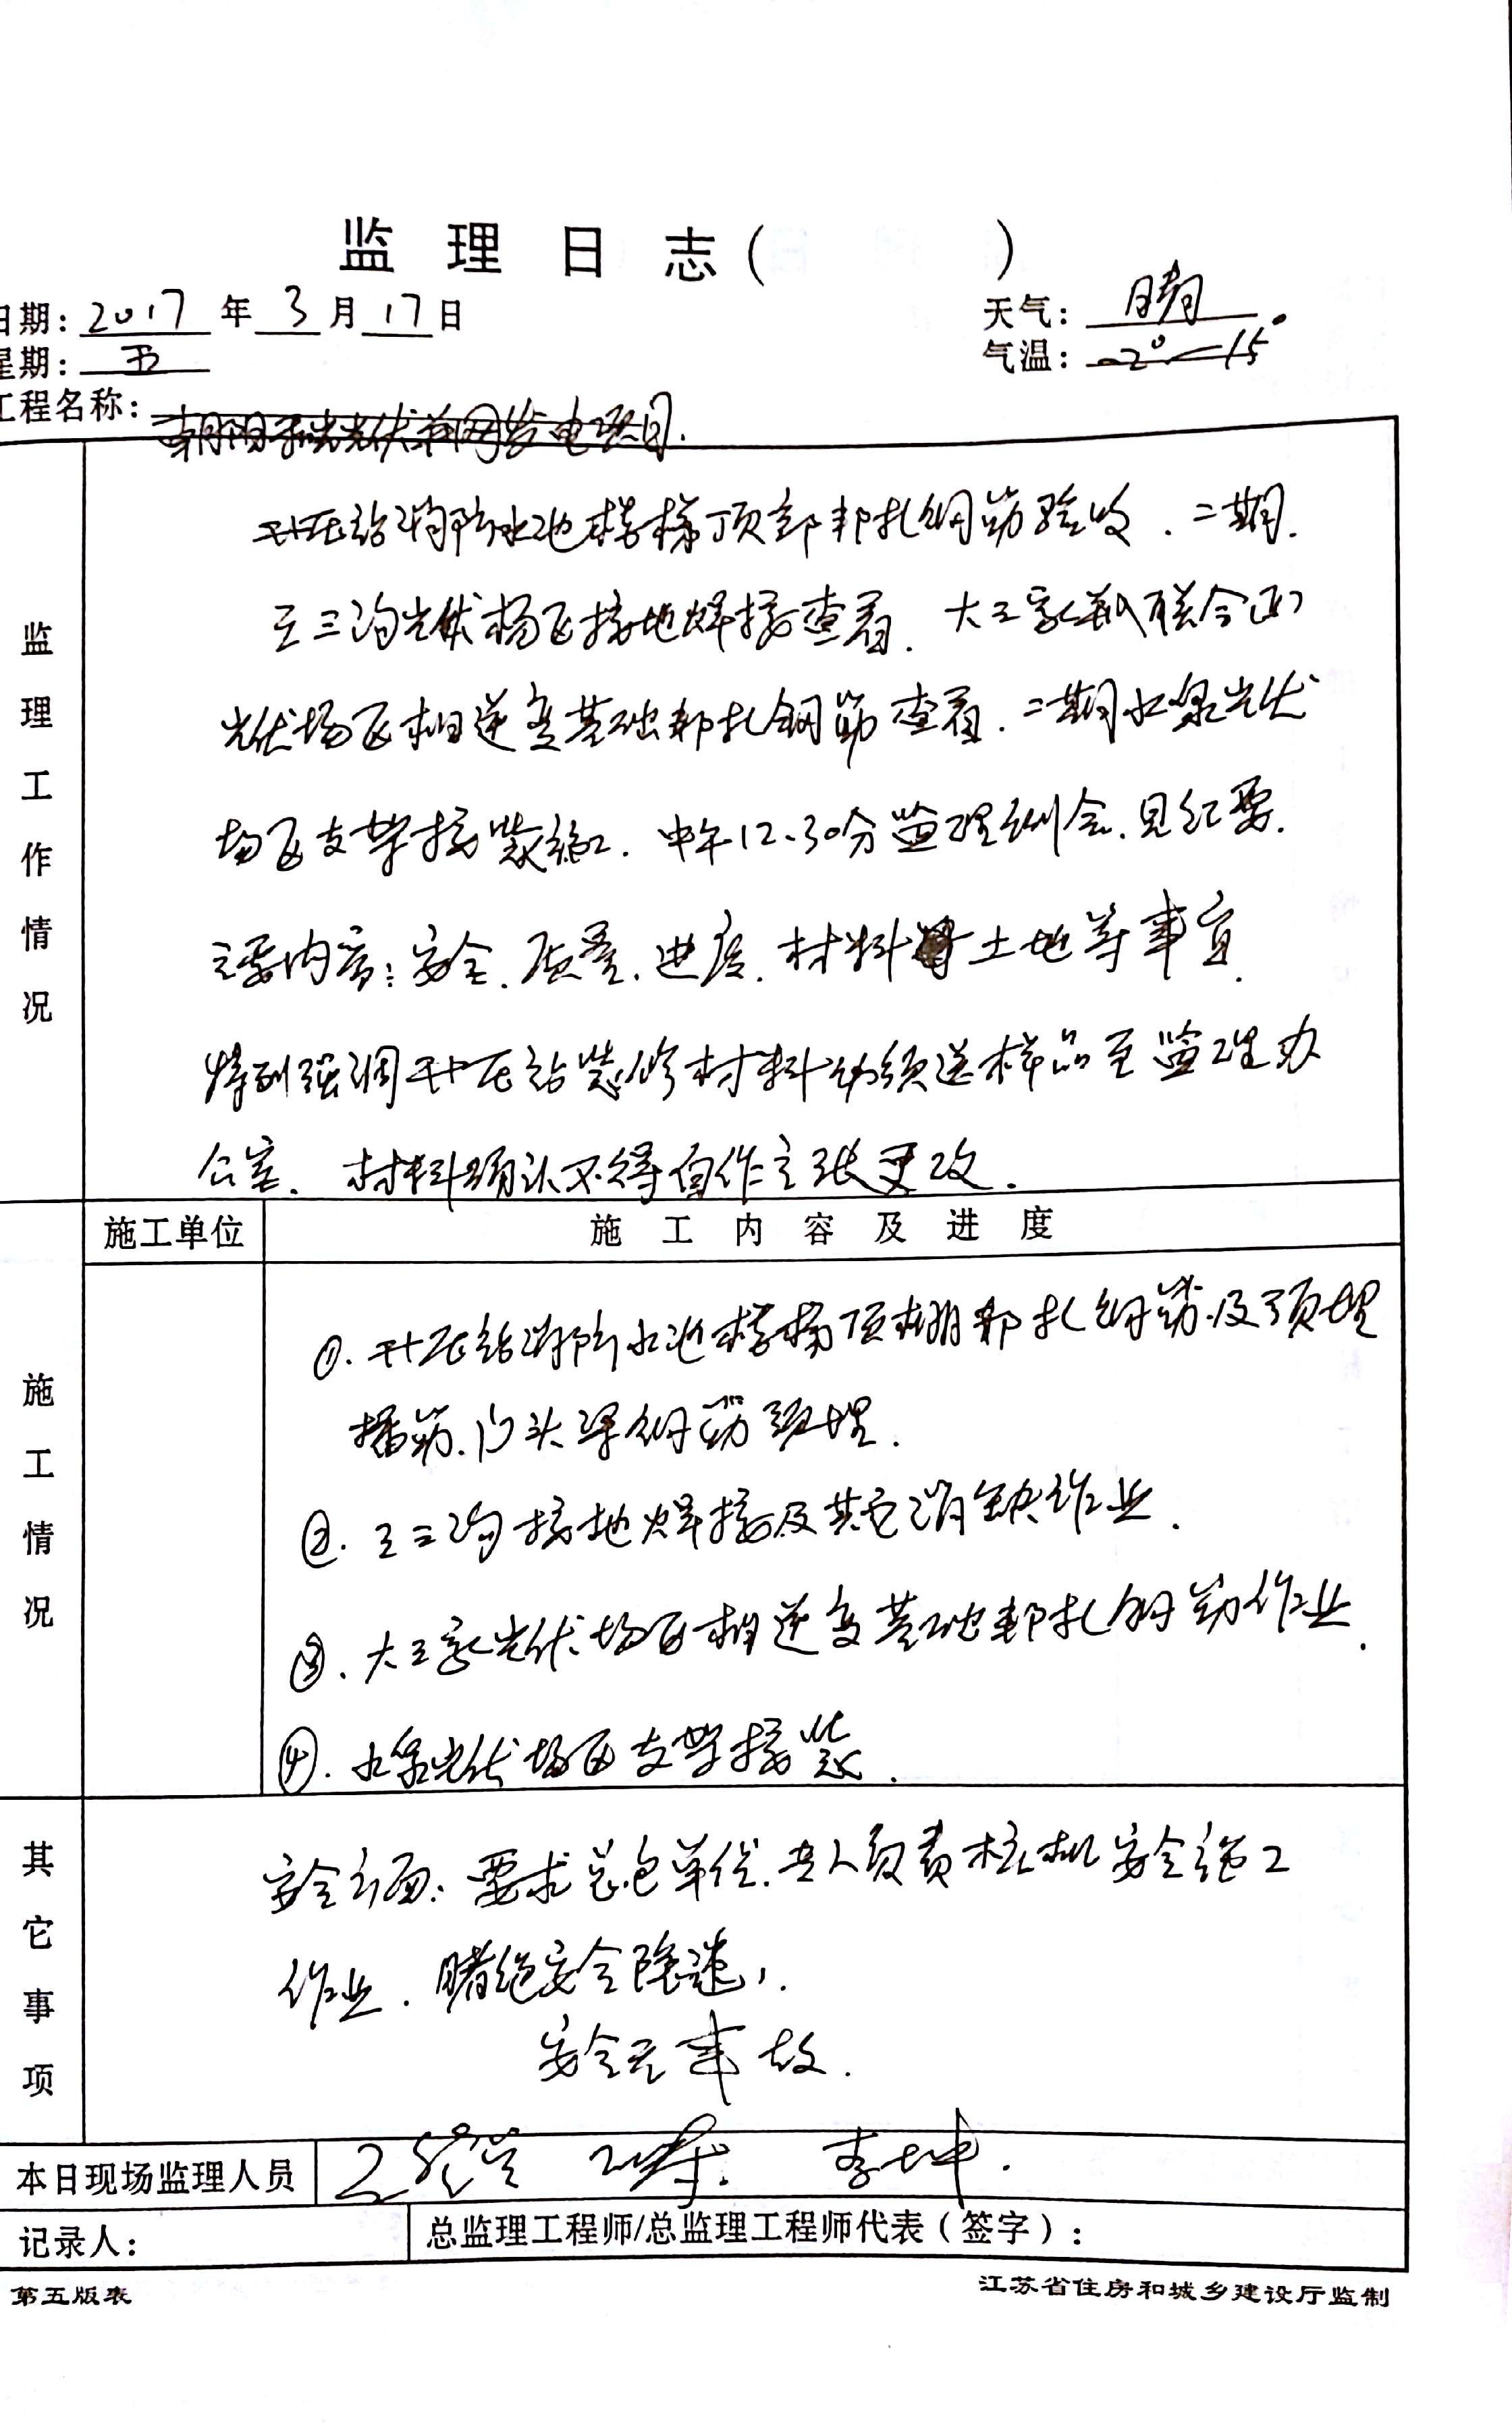 监理日志( )
日期: 2017 年 3 月 17 日
天气: 晴
星期: 五
气温: -2°~15°
工程名称: 朝阳光伏并网发电项目.
监理工作情况
升压站消防水池楼梯顶部邦扎钢筋验收. 二期.
王三沟光伏场区接地焊接查看. 大王家
光伏场区相逆变基础邦扎钢筋查看. 二期水泉光伏
场区支架接装施工. 中午12.30分监理例会. 见纪要.
主要内容: 安全. 质量. 进度. 材料 土地等事宜.
特别强调升压站装修材料必须送样品至监理办
公室. 材料确认不得自作主张更改.
施工单位
施工内容及进度
施工情况
①. 升压站消防水池楼梯顶棚邦扎钢筋及预埋
插筋. 门头梁钢筋预埋.
②. 王三沟接地焊接及其它消缺作业.
③. 大王家光伏场区相逆变基础邦扎钢筋作业.
④. 水泉光伏场区支架接装.
其它事项
安全方面: 要求总包单位. 专人负责桩机安全施工
作业. 睹绝安全隐患.
安全无事故.
本日现场监理人员
李坤.
记录人:
总监理工程师/总监理工程师代表(签字):
第五版表
江苏省住房和城乡建设厅监制